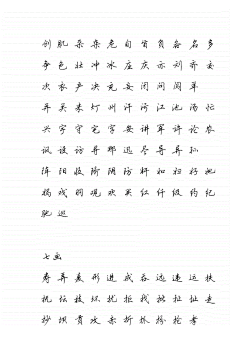 创 肌 朵 杂 危 旬 旨 负 各 名 多
争 色 壮 冲 冰 庄 庆 亦 刘 齐 交
次 衣 产 决 充 妄 闭 问 闯 羊
并 关 米 灯 州 汗 污 江 池 汤 忙
兴 宇 守 宅 字 安 讲 军 许 论 农
讽 设 访 寻 那 迅 尽 导 异 孙
阵 阳 收 阶 阴 防 奸 如 妇 好 她
妈 戏 羽 观 欢 买 红 纤 级 约 纪
驰 巡
七画
寿 弄 麦 形 进 戒 吞 远 违 运 扶
抚 坛 技 坏 扰 拒 找 批 扯 址 走
抄 坝 贡 攻 赤 折 抓 扮 抢 孝